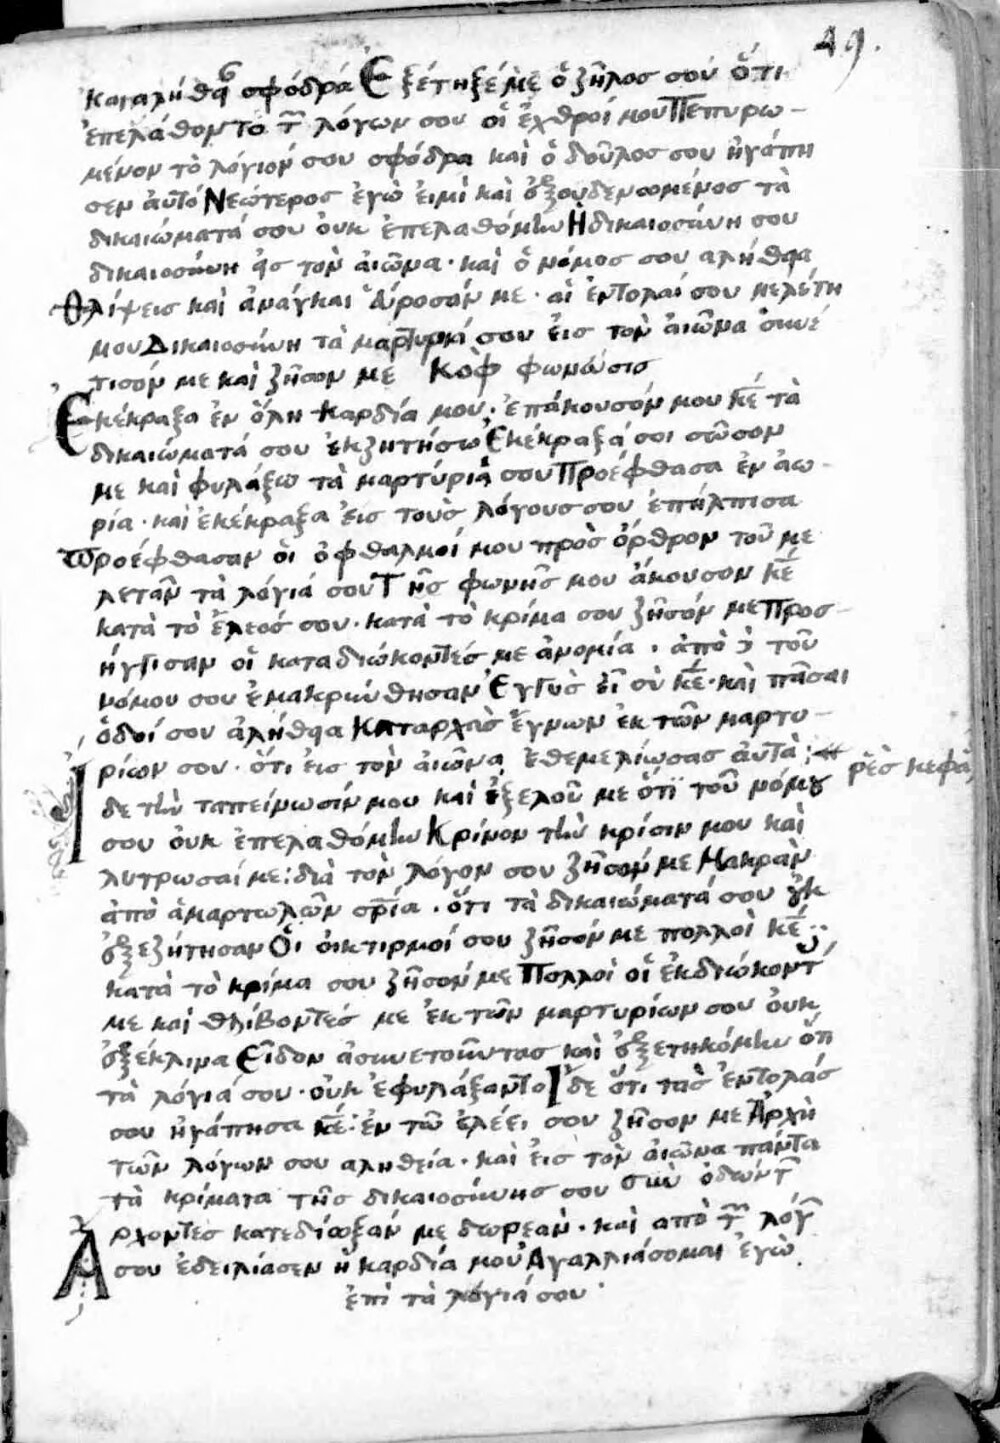 49.
καὶ ἀλήθειαν σφόδρα Ἐξέτηξέ με ὁ ζῆλος σου ὅτι
ἐπελάθοντο τ͂ λόγων σου οἱ ἐχθροί μου Πεπυρω-
μένον τὸ λόγιόν σου σφόδρα καὶ ὁ δοῦλος σου ἠγάπη
σεν αὐτό Νεώτερος ἐγὼ εἰμὶ καὶ ἐξουδενωμένος τὰ
δικαιώματά σου οὐκ ἐπελαθόμην Ἡ δικαιοσύνη σου
δικαιοσύνη εἰς τὸν αἰῶνα · καὶ ὁ νόμος σου αλήθεια
Θλίψεις καὶ ἀνάγκαι εὕροσάν με · αἱ ἐντολαί σου μελέτη
μου Δικαιοσύνη τὰ μαρτύριά σου εἰς τὸν αἰῶνα συνέ
τισόν με καὶ ζῆσον με Κὸφ φωνώσις
Ἐκέκραξα ἐν ὅλη καρδία μου · ἐπάκουσόν μου κε τὰ
δικαιώματά σου ἐκζητήσω Ἐκέκραξά σοι σῶσον
με καὶ φυλάξω τὰ μαρτύριά σου Προέφθασα ἐν ἀω-
ρία · καὶ ἐκέκραξα εἰς τοὺς λόγους σου ἐπήλπισα
Προέφθασαν οἱ ὀφθαλμοί μου πρὸς ὄρθρον τοῦ με
λετᾶν τὰ λόγιά σου Τῆς φωνῆς μου ἄκουσον κε
κατὰ τὸ ἔλεός σου · κατὰ τὸ κρίμα σου ζῆσόν με Προσ-
ήγγισαν οἱ καταδιώκοντές με ἀνομία · ἀπὸ δὲ τοῦ
νόμου σου ἐμακρύνθησαν Ἐγγὺς εἶ σὺ κε · καὶ πᾶσαι
ὁδοί σου ἀλήθεια Καταρχὰς ἔγνων ἐκ τῶν μαρτυ-
ρίων σου · ὅτι εἰς τὸν αἰῶνα ἐθεμελίωσας αὐτά : ρὲς κεφά
Ἴδε τὴν ταπείνωσίν μου καὶ ἐξελοῦ με ὅτι τοῦ νόμου
σου οὐκ ἐπελαθόμην Κρίνον τὴν κρίσιν μου καὶ
λύτρωσαί με : διὰ τὸν λόγον σου ζῆσόν με Μακρὰν
ἀπὸ ἁμαρτωλῶν σρία · ὅτι τὰ δικαιώματά σου οὐκ
ἐξεζήτησαν Οἱ οἰκτιρμοί σου ζῆσόν με πολλοὶ κε :
κατὰ τὸ κρίμα σου ζῆσόν με Πολλοὶ οἱ ἐκδιώκοντ
με καὶ θλίβοντές με ἐκ τῶν μαρτυρίων σου οὐκ
ἐξέκλινα Εἶδον ἀσυνετοῦντας καὶ ἐξετηκόμην ὅτι
τὰ λόγιά σου · οὐκ ἐφυλάξαντο Ἴδε ὅτι τὰς ἐντολάς
σου ἠγάπησα κε : ἐν τῶ ἐλέει σου ζῆσον με Ἀρχὴ
τῶν λόγων σου αληθεία · καὶ εἰς τὸν αἰῶνα πάντα
τὰ κρίματα τῆς δικαιοσύνης σου Σὶν ὀδώντ
Ἄρχοντες κατεδίωξάν με δωρεὰν · καὶ απὸ τ͂ λόγ
σου ἐδειλίασεν ἡ καρδία μου Ἀγαλλιάσομαι ἐγὼ
ἐπὶ τὰ λόγιά σου